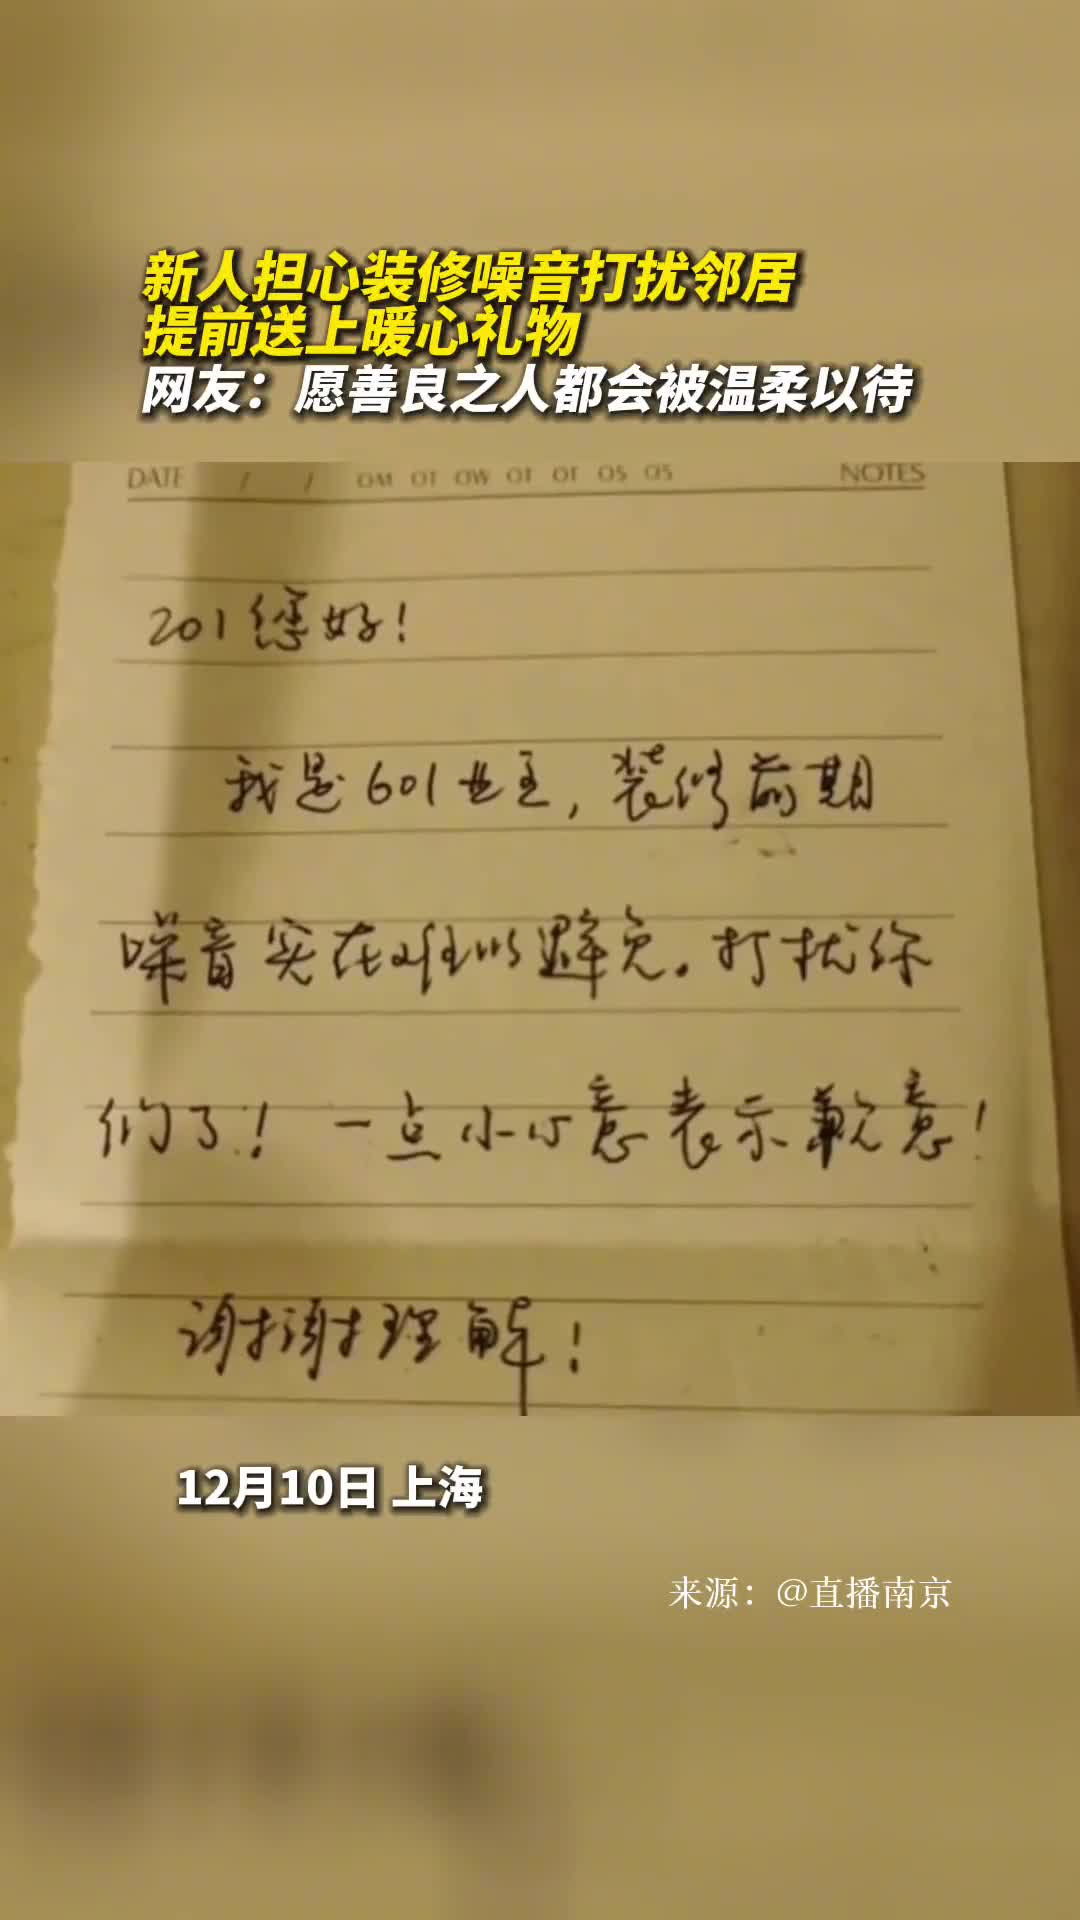 新人担心装修噪音打扰邻居
提前送上暖心礼物
网友：愿善良之人都会被温柔以待
DATE / / OM OT OW OT OF OS OS NOTES
201您好！
我是601业主，装修前期
噪音实在难以避免。打扰你
们了！一点小心意表示歉意！
谢谢理解！
12月10日 上海
来源：@直播南京